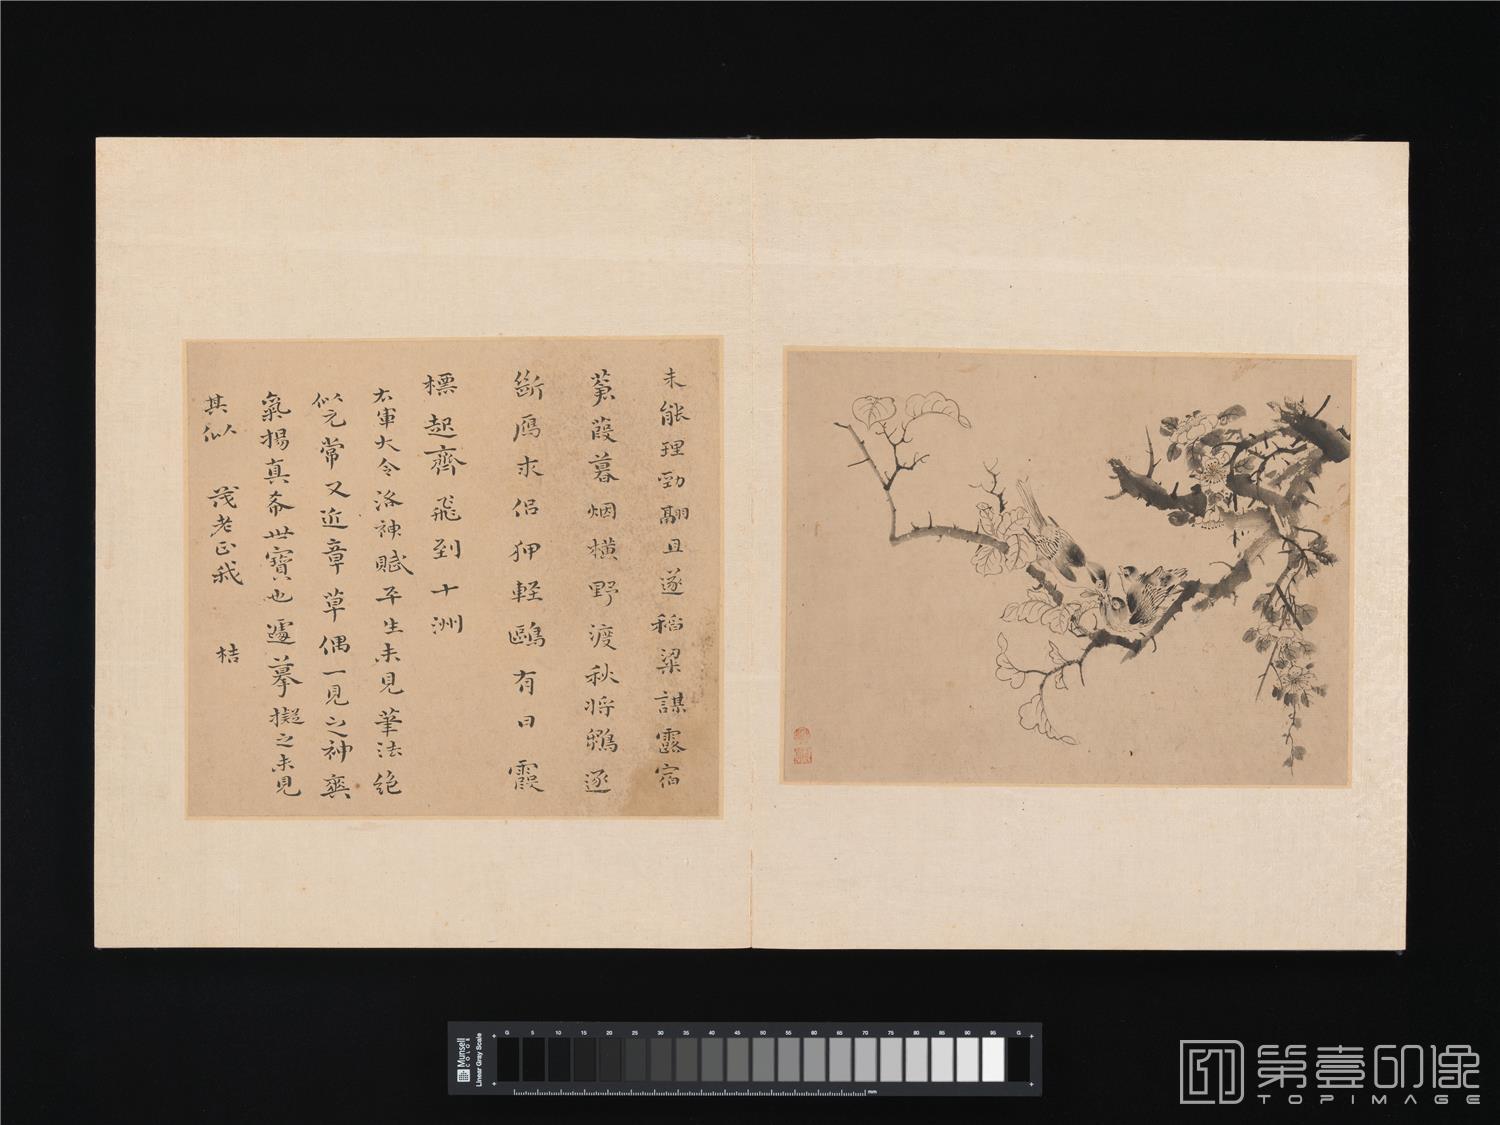 未能理勁翮且遂稻粱謀露宿
葭暮烟橫野渡秋將鴉逐
斷鴈求侶狎輕鷗有日霞
標起齊飛到十洲
右軍大令洛神賦平生未見筆法絕
似元常又近章草偶一見之神爽
氣揚真希世寶也遽摹擬之未見
其似 茂老正我 桔
Munsell
COLOR
Linear Gray Scale
G 5 10 15 20 25 30 35 40 45 50 55 60 65 70 75 80 85 90 95 G
mm
第壹印像
TOPIMAGE